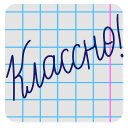 Классно!